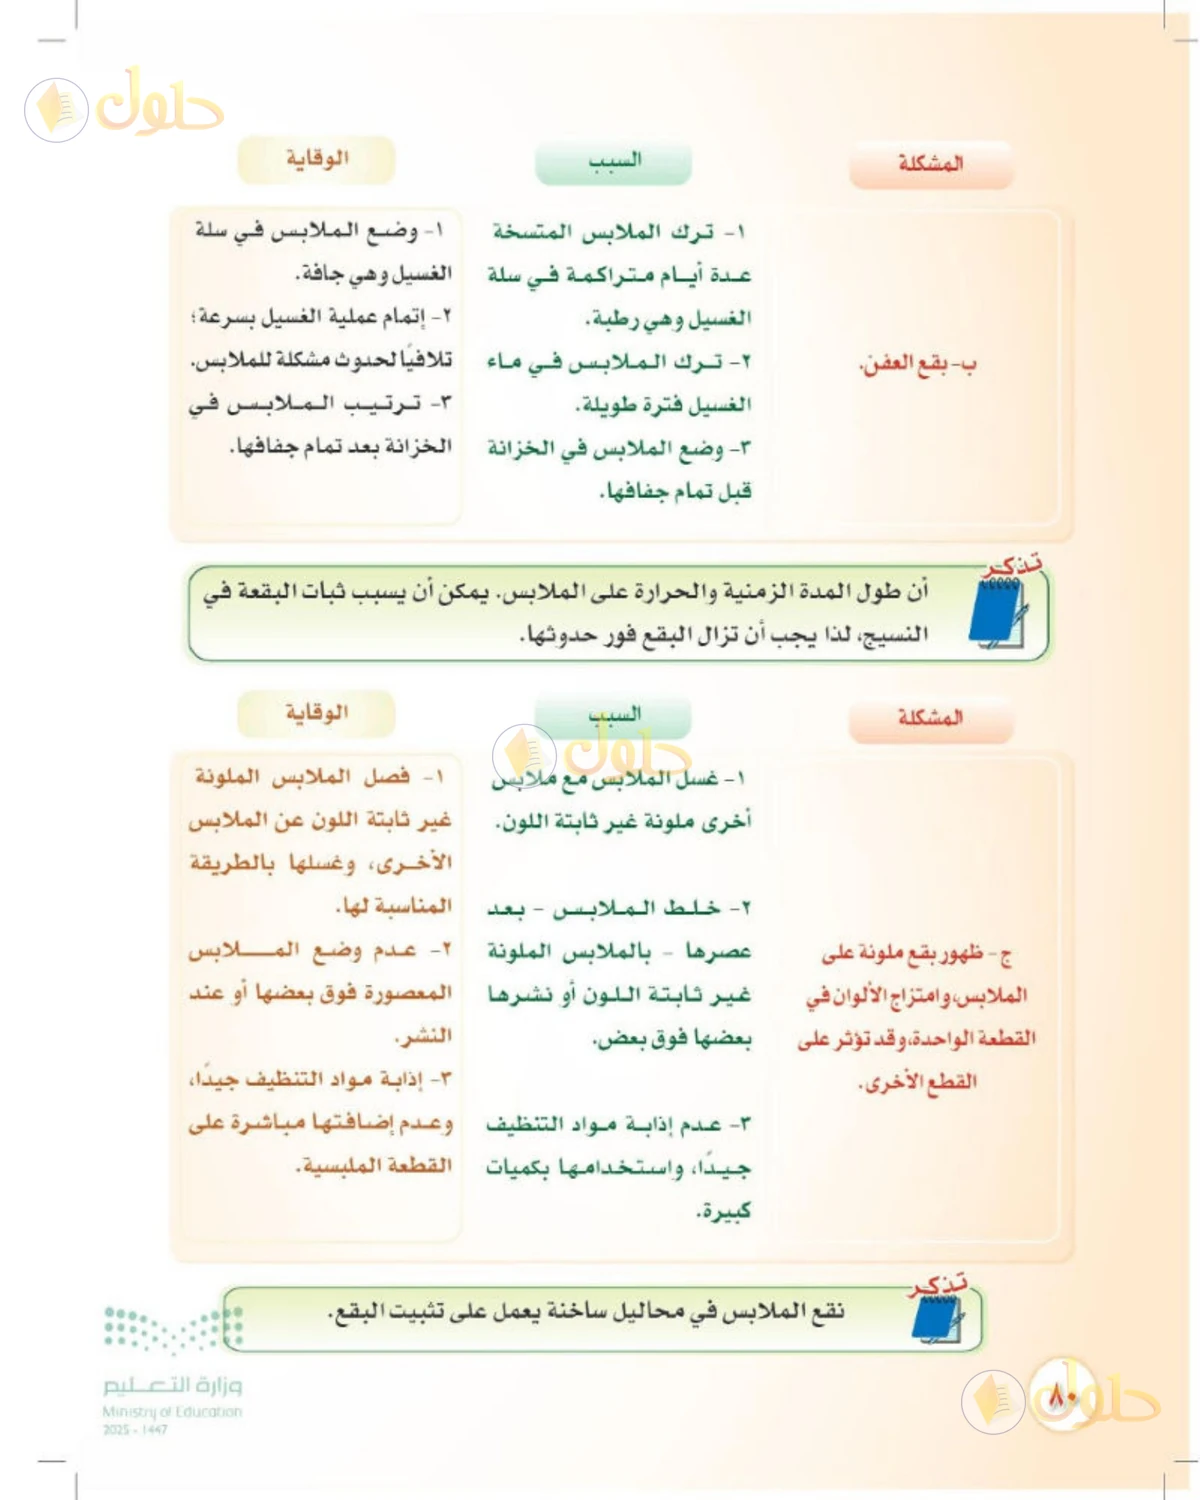 حلول
المشكلة
السبب
الوقاية
ب- بقع العفن.
١- ترك الملابس المتسخة
عدة أيام متراكمة في سلة
الغسيل وهي رطبة.
٢- ترك الملابس في ماء
الغسيل فترة طويلة.
٣- وضع الملابس في الخزانة
قبل تمام جفافها.
١- وضع الملابس في سلة
الغسيل وهي جافة.
٢- إتمام عملية الغسيل بسرعة؛
تلافيًا لحدوث مشكلة للملابس.
٣- ترتيب الملابس في
الخزانة بعد تمام جفافها.
تذكر
أن طول المدة الزمنية والحرارة على الملابس. يمكن أن يسبب ثبات البقعة في
النسيج، لذا يجب أن تزال البقع فور حدوثها.
المشكلة
السبب
الوقاية
حلول
ج- ظهور بقع ملونة على
الملابس، وامتزاج الألوان في
القطعة الواحدة، وقد تؤثر على
القطع الأخرى.
١- غسل الملابس مع ملابس
أخرى ملونة غير ثابتة اللون.
٢- خلط الملابس - بعد
عصرها - بالملابس الملونة
غير ثابتة اللون أو نشرها
بعضها فوق بعض.
٣- عدم إذابة مواد التنظيف
جيدًا، واستخدامها بكميات
كبيرة.
١- فصل الملابس الملونة
غير ثابتة اللون عن الملابس
الأخرى، وغسلها بالطريقة
المناسبة لها.
٢- عدم وضع الملابس
المعصورة فوق بعضها أو عند
النشر.
٣- إذابة مواد التنظيف جيدًا،
وعدم إضافتها مباشرة على
القطعة الملبسية.
تذكر
نقع الملابس في محاليل ساخنة يعمل على تثبيت البقع.
وزارة التعليم
Ministry of Education
2025 - 1447
٨٠
حلول